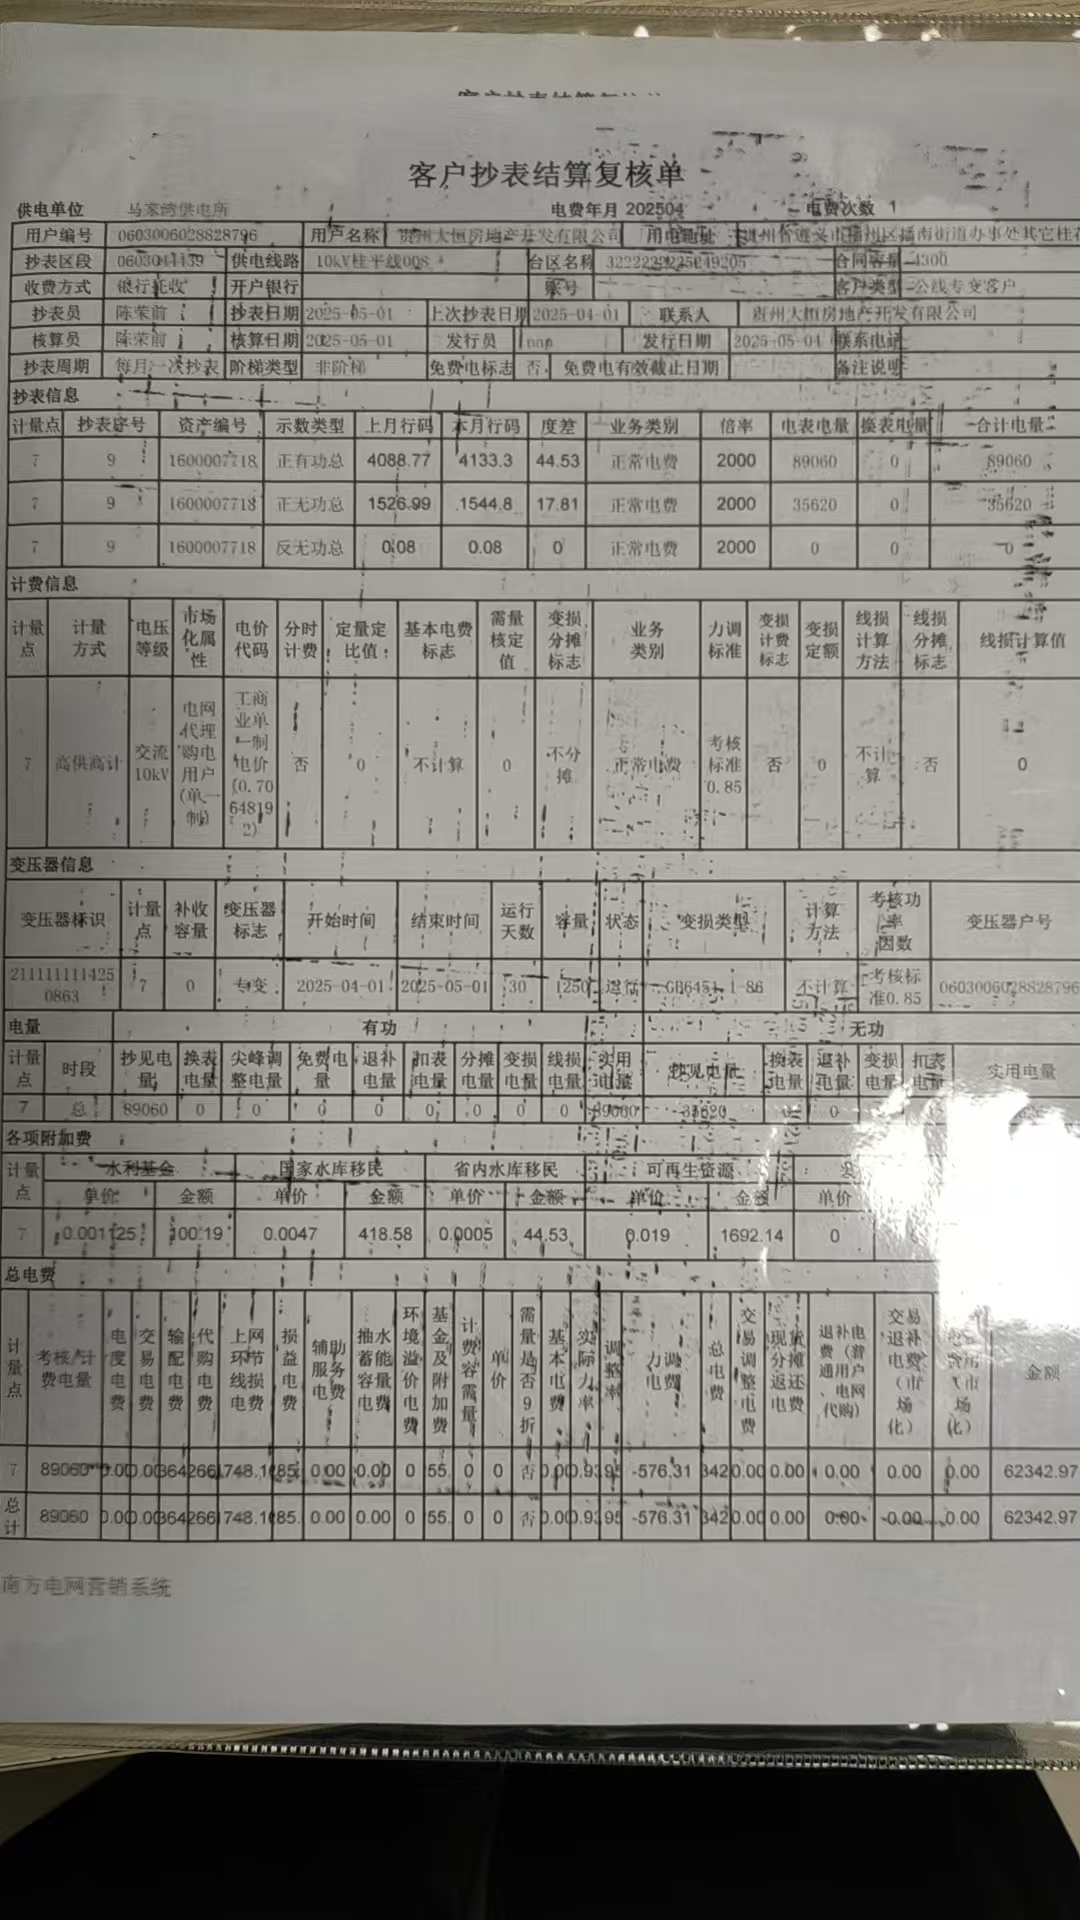 客户抄表结算复核单
供电单位 马家湾供电所 电费年月 202504 电费次数 1
用户编号 0603006028828796 用户名称 贵州大恒房地产开发有限公司 用电地址 贵州省遵义市播州区播南街道办事处其它桂花
抄表区段 0603041139 供电线路 10kV桂平线008 台区名称 合同容量 4300
收费方式 银行托收 开户银行 账号 客户类型 公线专变客户
抄表员 陈荣前 抄表日期 2025-05-01 上次抄表日期 2025-04-01 联系人 贵州大恒房地产开发有限公司
核算员 陈荣前 核算日期 2025-05-01 发行员 发行日期 2025-05-04 联系电话
抄表周期 每月一次抄表 阶梯类型 非阶梯 免费电标志 否 免费电有效截止日期 备注说明
抄表信息
计量点 抄表序号 资产编号 示数类型 上月行码 本月行码 度差 业务类别 倍率 电表电量 换表电量 合计电量
7 9 1600007718 正有功总 4088.77 4133.3 44.53 正常电费 2000 89060 0 89060
7 9 1600007718 正无功总 1526.99 1544.8 17.81 正常电费 2000 35620 0 35620
7 9 1600007718 反无功总 0.08 0.08 0 正常电费 2000 0 0 0
计费信息
计量点 计量方式 电压等级 市场化属性 电价代码 分时计费 定量定比值 基本电费标志 需量核定值 变损分摊标志 业务类别 力调标准 变损计费标志 变损定额 线损计算方法 线损分摊标志 线损计算值
7 高供高计 交流10kV 电网代理购电用户(单一制) 工商业单一制电价(0.70648192) 否 0 不计算 0 不分摊 正常电费 考核标准0.85 否 0 不计算 否 0
变压器信息
变压器标识 计量点 补收容量 变压器标志 开始时间 结束时间 运行天数 容量 状态 变损类型 计算方法 考核功率因数 变压器户号
2111111114250863 7 0 专变 2025-04-01 2025-05-01 30 1250 运行 GB6451.1-86 不计算 考核标准0.85 0603006028828796
电量 有功 无功
计量点 时段 抄见电量 换表电量 尖峰调整电量 免费电量 退补电量 扣表电量 分摊电量 变损电量 线损电量 实用电量 抄见电量 换表电量 退补电量 变损电量 扣表电量 实用电量
7 总 89060 0 0 0 0 0 0 0 0 89060 35620 0 0
各项附加费
计量点 水利基金 国家水库移民 省内水库移民 可再生资源
单价 金额 单价 金额 单价 金额 单价 金额 单价
7 0.001125 100.19 0.0047 418.58 0.0005 44.53 0.019 1692.14 0
总电费
计量点 考核/计费电量 电度电费 交易电费 输配电费 代购电费 上网环节线损电费 损益电费 辅助服务电费 抽水蓄能容量电费 环境溢价电费 基金及附加费 计费容需量 单价 需量是否9折 基本电费 实际力率 调整率 力调电费 总电费 交易调整电费 现货分摊返还电费 退补电费(普通用户、电网代购) 交易补退电费(市场化) 金额
7 89060 0.00 0.00 364 266 748.1 85. 0.00 0.00 0 55. 0 0 否 0.00 0.93 95 -576.31 342 0.00 0.00 0.00 0.00 0.00 62342.97
总计 89060 0.00 0.00 364 266 748.1 85. 0.00 0.00 0 55. 0 0 否 0.00 0.93 95 -576.31 342 0.00 0.00 0.00 0.00 0.00 62342.97
南方电网营销系统